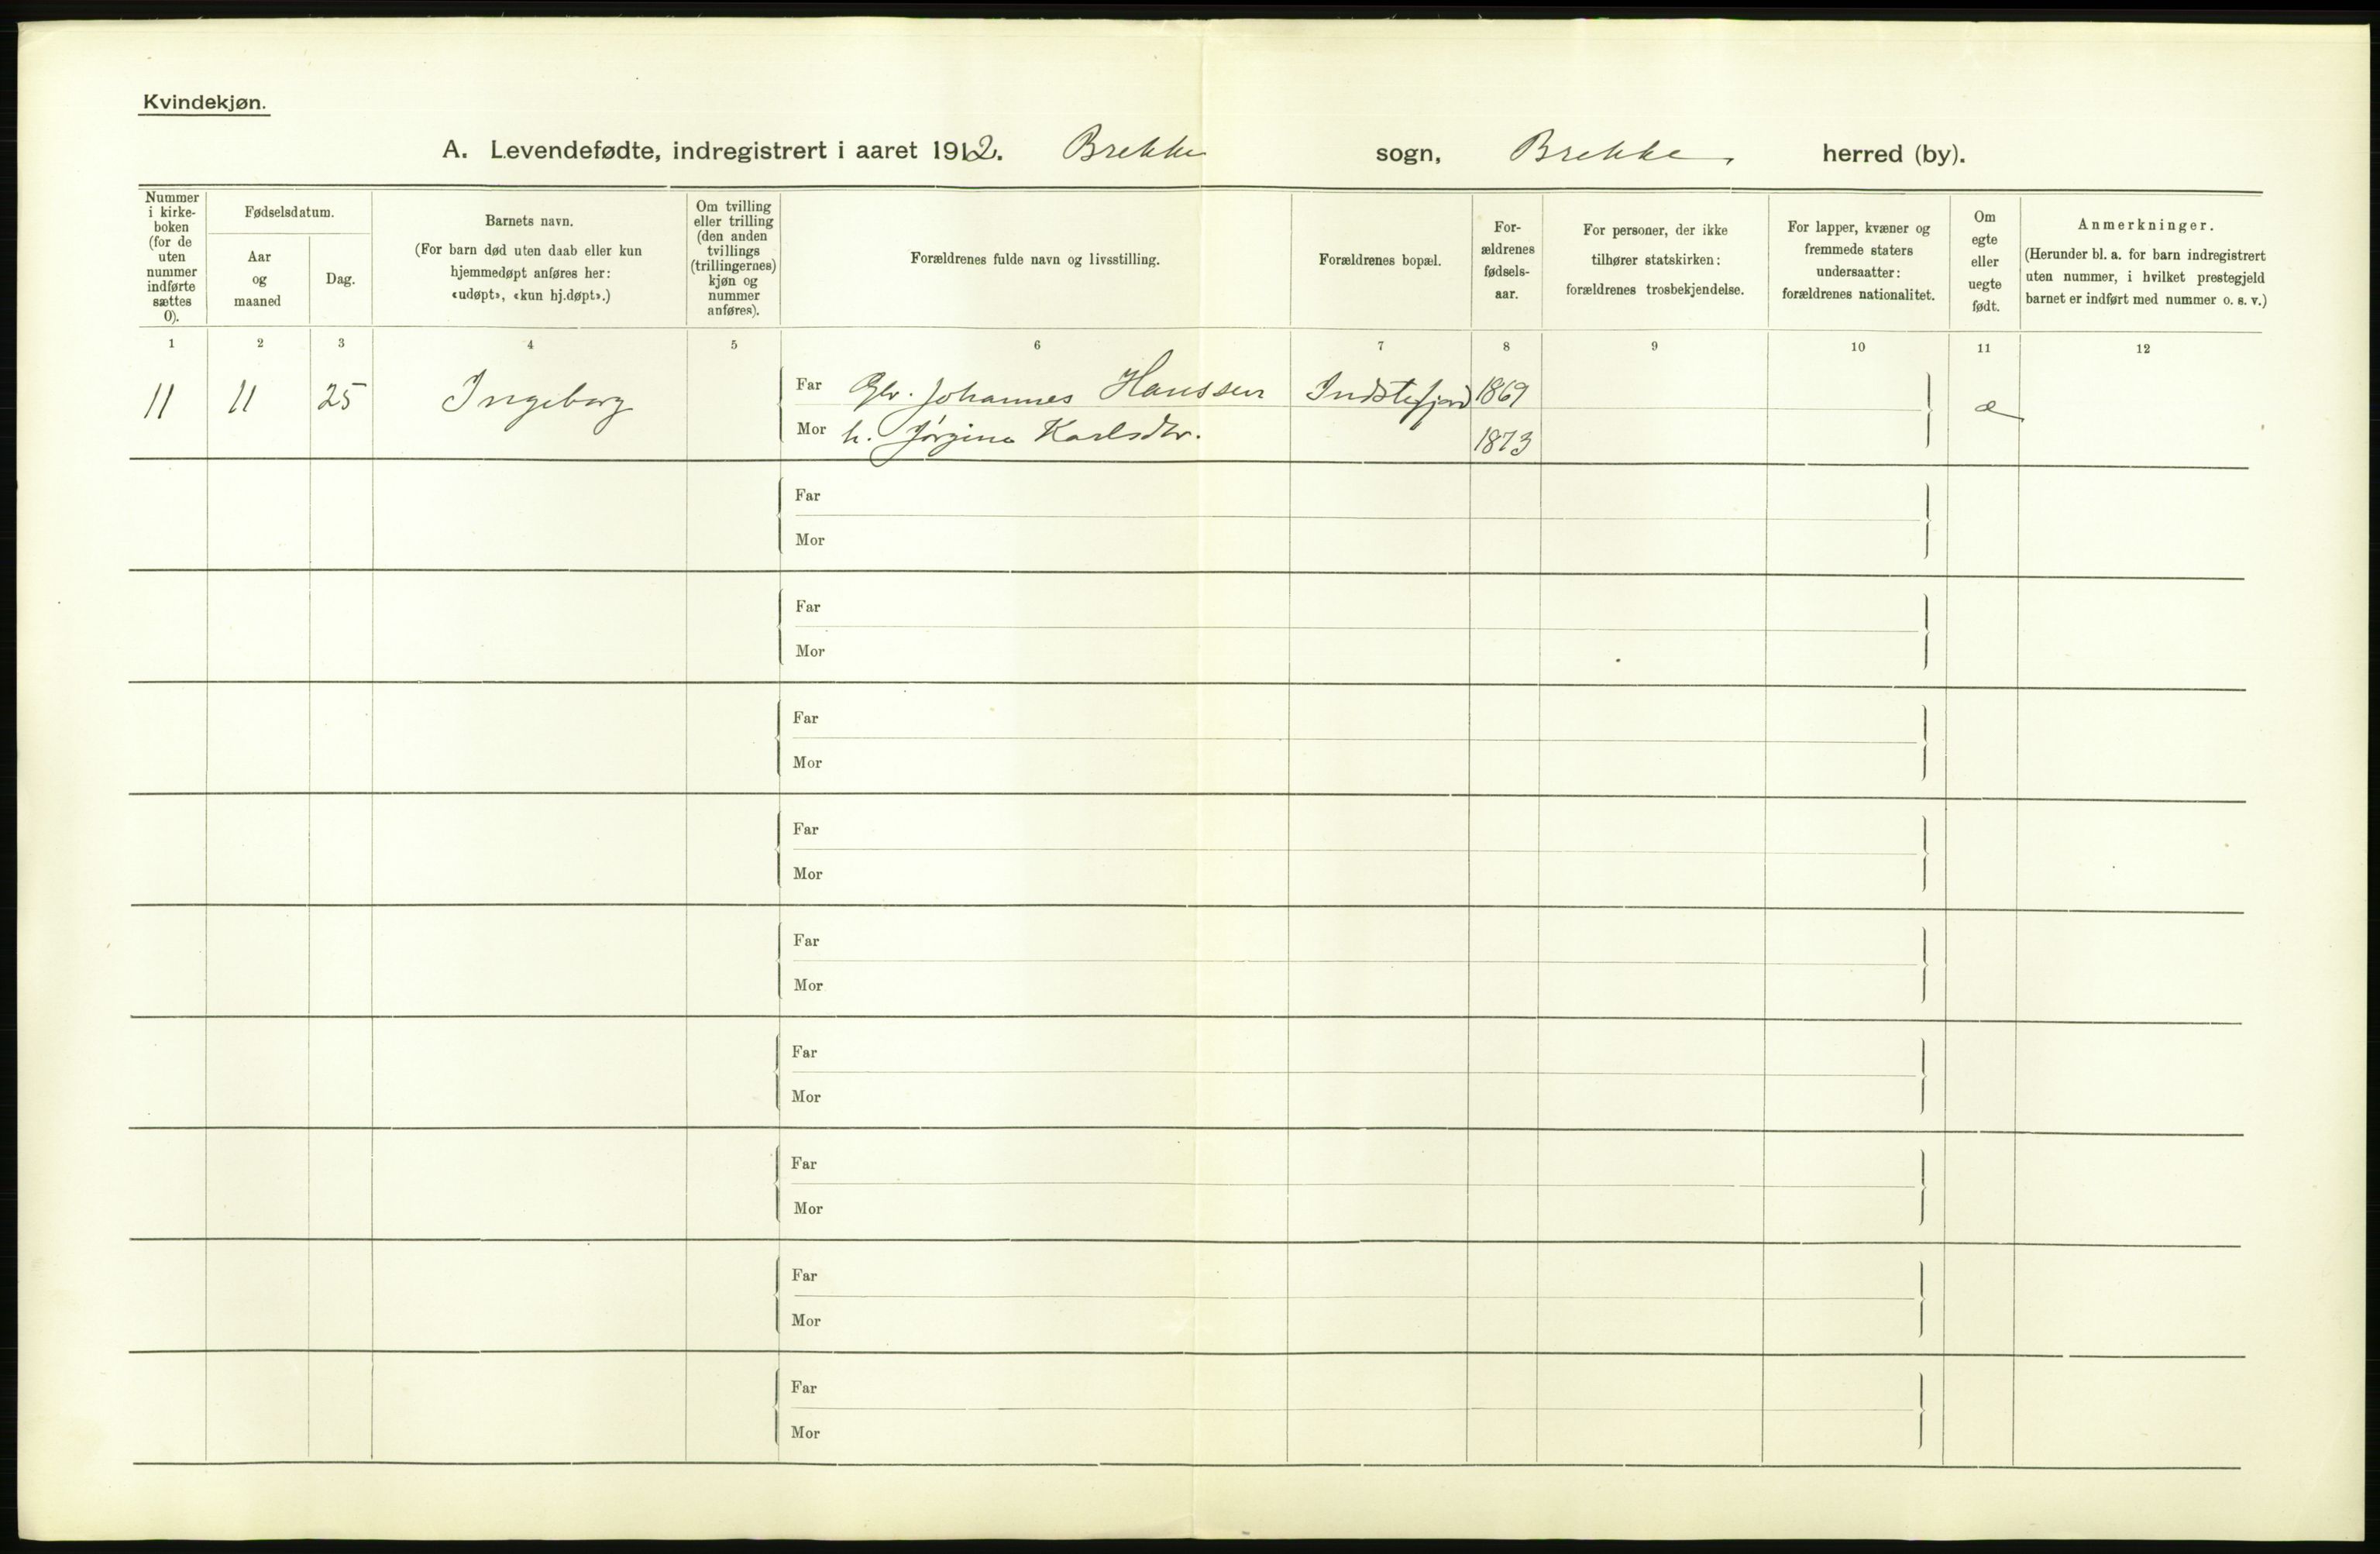 Kvindekjøn.
A. Levendefødte, indregistrert i aaret 1912. Brekke sogn, Brekke, herred (by).
Nummer
i kirke-
boken
(for de
uten
nummer
indførte
sættes
0).
Fødselsdatum.
Aar
og
maaned
Dag.
Barnets navn.
(For barn død uten daab eller kun
hjemmedøpt anføres her:
«udøpt», «kun hj.døpt».)
Om tvilling
eller trilling
(den anden
tvillings
(trillingernes)
kjøn og
nummer
anføres).
Forældrenes fulde navn og livsstilling.
Forældrenes bopæl.
For-
ældrenes
fødsels-
aar.
For personer, der ikke
tilhører statskirken:
forældrenes trosbekjendelse.
For lapper, kvæner og
fremmede staters
undersaatter:
forældrenes nationalitet.
Om
egte
eller
uegte
født.
Anmerkninger.
(Herunder bl. a. for barn indregistrert
uten nummer, i hvilket prestegjeld
barnet er indført med nummer o. s. v.)
1 2 3 4 5 6 7 8 9 10 11 12
11 11 25 Ingeborg Far Gbr. Johannes Hanssen Indstefjord 1869 æ
Mor h. Jørgine Karlsdtr. 1873
Far
Mor
Far
Mor
Far
Mor
Far
Mor
Far
Mor
Far
Mor
Far
Mor
Far
Mor
Far
Mor